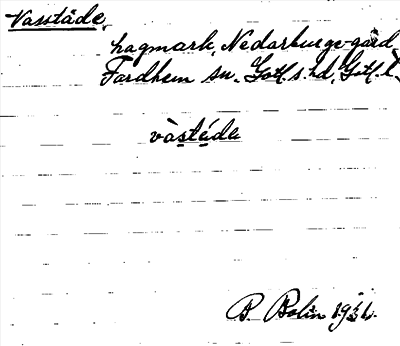 Vasstäde,
hagmark, Nedarburge-gård
Fardhem sn. Gotl. s. hd, Gotl. l.
vàstéde
B. Bolin 1931.